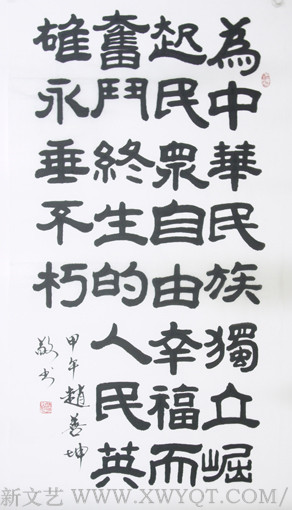 為中華民族獨立崛
起民眾自由幸福而
奮鬥終生的人民英
雄永垂不朽
甲午趙善坤
敬书
新文艺 WWW.XWYQT.COM/